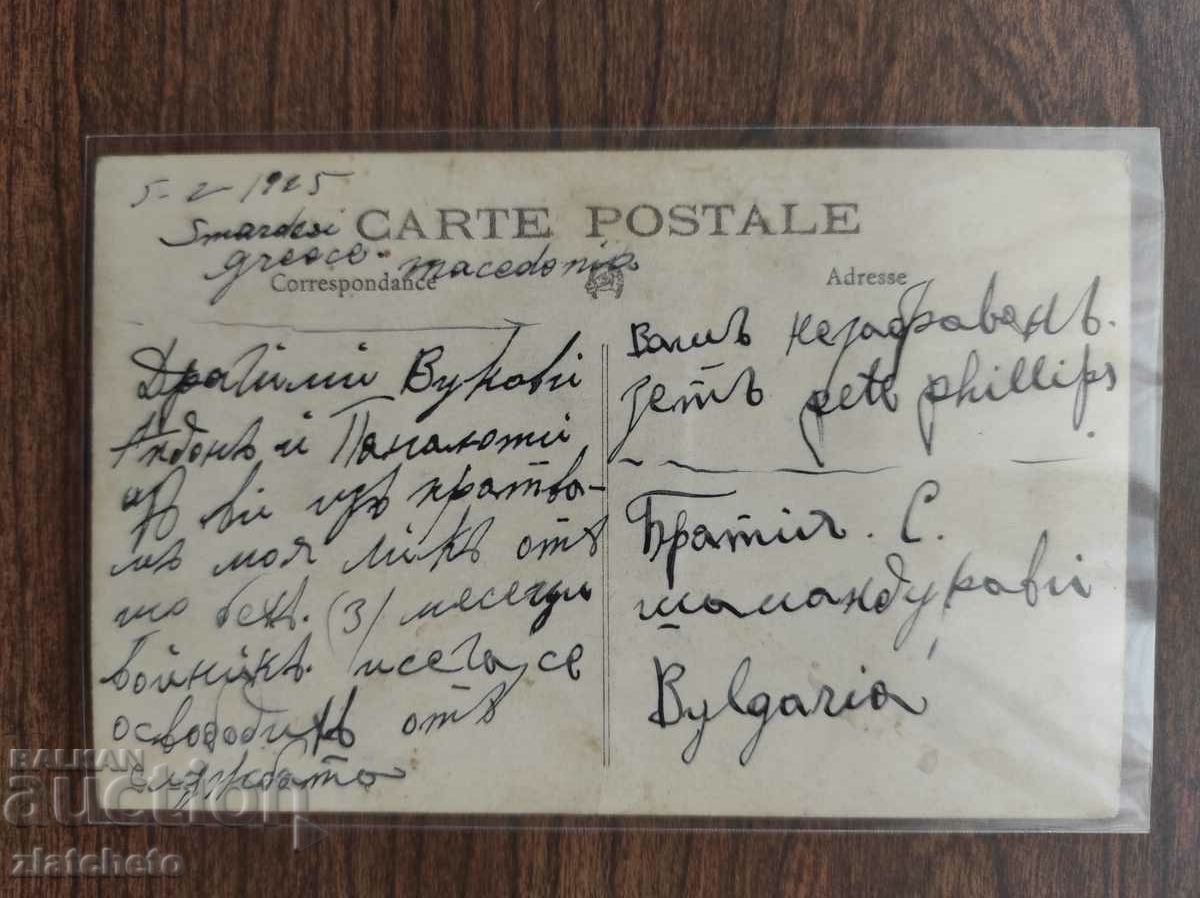 5-2 1925
Smardesi CARTE POSTALE
greece. macedonia
Correspondance
Adresse
Драгими Вукови
Андонъ и Панаиоти
азъ ви изъ пратва-
мъ моя ликъ отъ
що бехъ. (3) месеци
Войникъ. исега се
освободихъ отъ
службата
Вашъ незабравенъ.
зетъ pete phillips
Братия. С.
шамандурови
Bylgaria
BALKAN
auction
zlatcheto